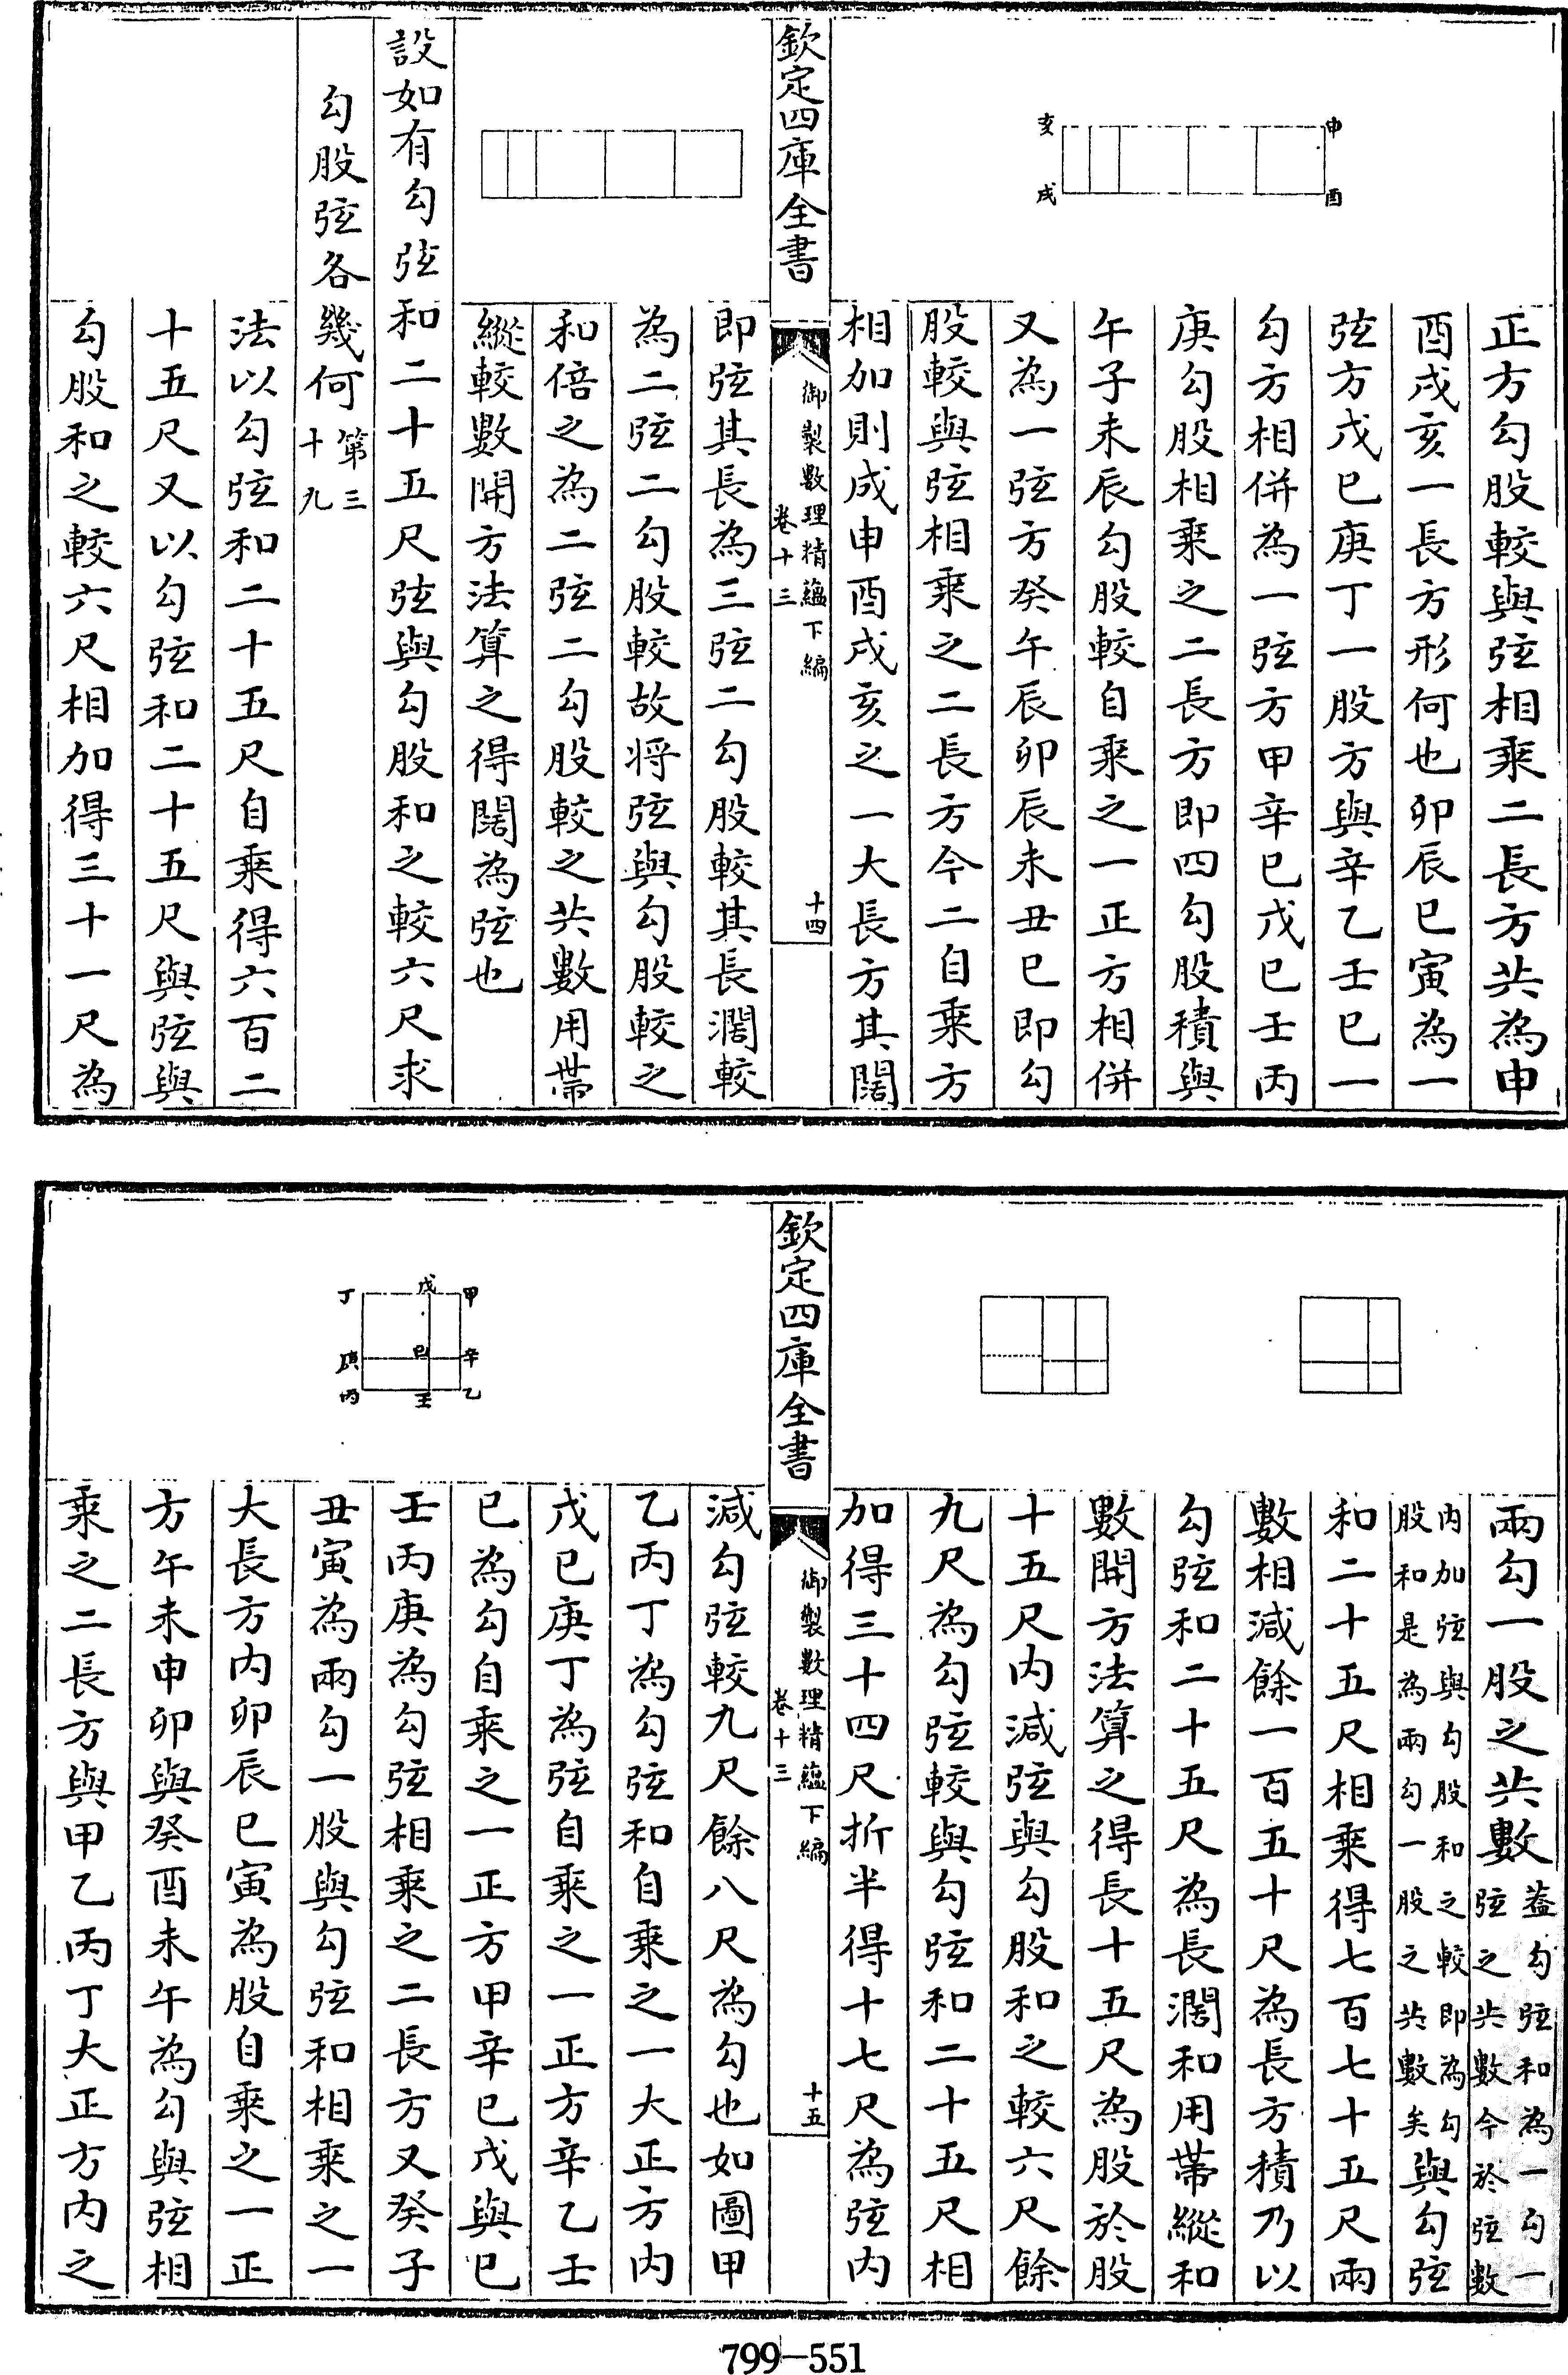 申
酉
亥
戌
正方勾股較與弦相乘二長方共為申
酉戌亥一長方形何也卯辰巳寅為一
弦方戊巳庚丁一股方與辛乙壬巳一
勾方相併為一弦方甲辛巳戊巳壬丙
庚勾股相乘之二長方即四勾股積與
午子未辰勾股較自乘之一正方相併
又為一弦方癸午辰卯辰未丑巳即勾
股較與弦相乘之二長方今二自乘方
相加則成申酉戌亥之一大長方其闊
欽定四庫全書
御製數理精蘊下編
卷十三
十四
即弦其長為三弦二勾股較其長濶較
為二弦二勾股較故將弦與勾股較之
和倍之為二弦二勾股較之共數用帶
縱較數開方法算之得闊為弦也
設如有勾弦和二十五尺弦與勾股和之較六尺求
勾股弦各幾何第三
十九
法以勾弦和二十五尺自乘得六百二
十五尺又以勾弦和二十五尺與弦與
勾股和之較六尺相加得三十一尺為
兩勾一股之共數葢勾弦和為一勾一
弦之共數今於弦數
內加弦與勾股和之較即為勾
股和是為兩勾一股之共數矣與勾弦
和二十五尺相乘得七百七十五尺兩
數相減餘一百五十尺為長方積乃以
勾弦和二十五尺為長濶和用帶縱和
數開方法算之得長十五尺為股於股
十五尺內減弦與勾股和之較六尺餘
九尺為勾弦較與勾弦和二十五尺相
加得三十四尺折半得十七尺為弦內
欽定四庫全書
御製數理精蘊下編
卷十三
十五
甲
戊
丁
辛
巳
庚
乙
壬
丙
減勾弦較九尺餘八尺為勾也如圖甲
乙丙丁為勾弦和自乘之一大正方內
戊巳庚丁為弦自乘之一正方辛乙壬
巳為勾自乘之一正方甲辛巳戊與巳
壬丙庚為勾弦相乘之二長方又癸子
丑寅為兩勾一股與勾弦和相乘之一
大長方內卯辰巳寅為股自乘之一正
方午未申卯與癸酉未午為勾與弦相
乘之二長方與甲乙丙丁大正方內之
799-551